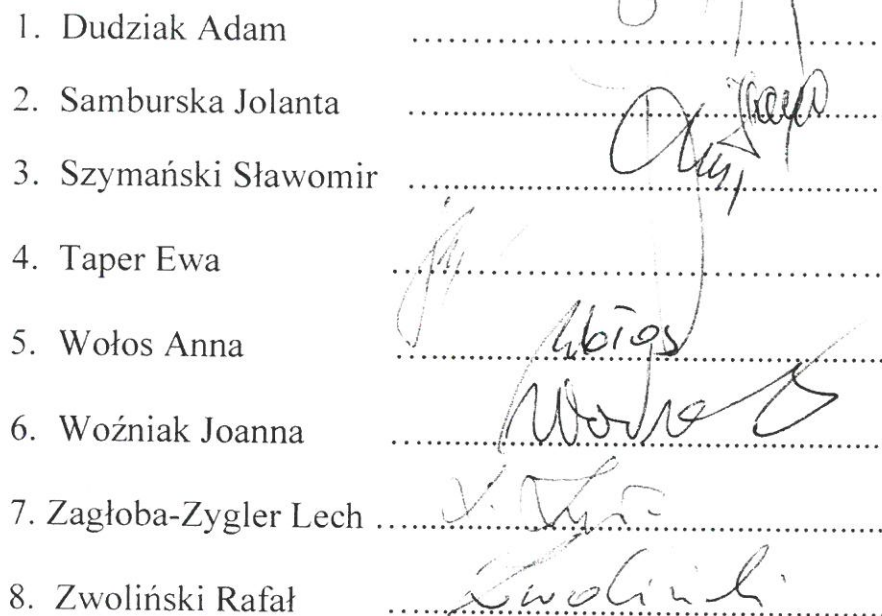 1. Dudziak Adam ........................................
2. Samburska Jolanta ........................................
3. Szymański Sławomir ........................................
4. Taper Ewa ........................................
5. Wołos Anna ........................................ Wołos
6. Woźniak Joanna ........................................
7. Zagłoba-Zygler Lech ........................................
8. Zwoliński Rafał ........................................ Zwoliński